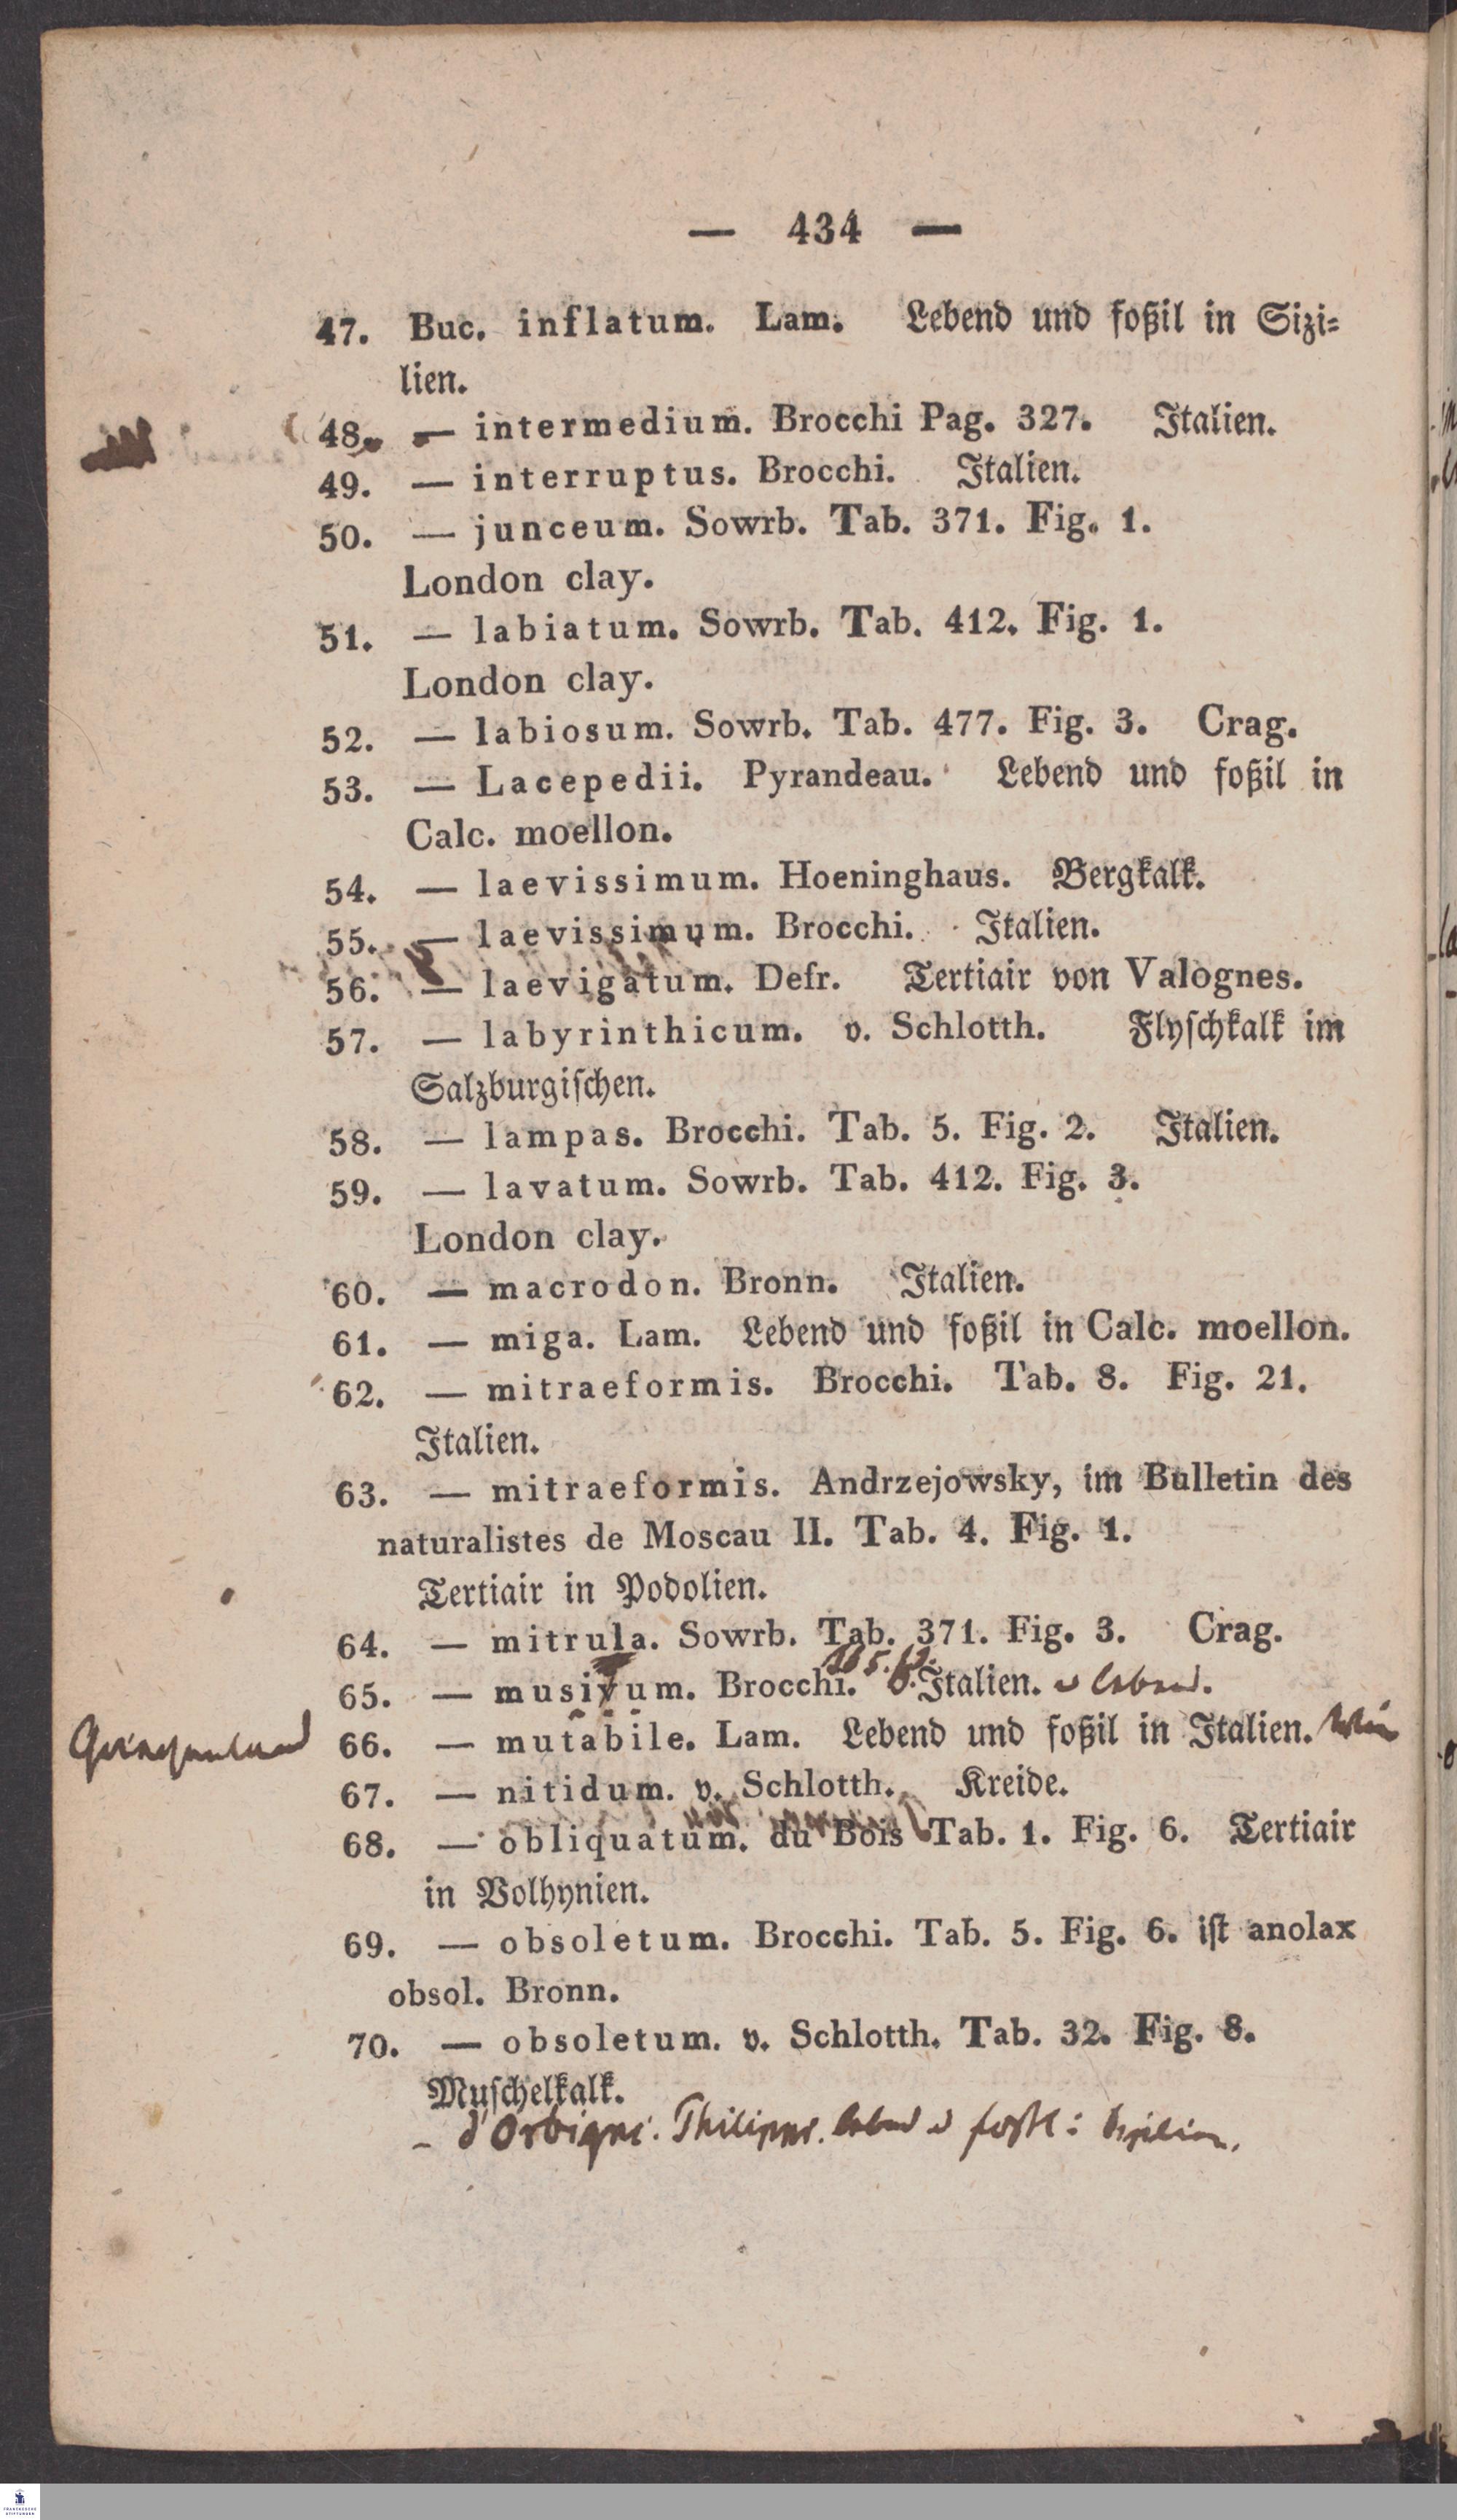 — 434 —
47. Buc. inflatum. Lam. Lebend und foßil in Sizi=
lien.
48. — intermedium. Brocchi Pag. 327. Italien.
49. — interruptus. Brocchi. Italien.
50. — junceum. Sowrb. Tab. 371. Fig. 1.
London clay.
51. — labiatum. Sowrb. Tab. 412. Fig. 1.
London clay.
52. — labiosum. Sowrb. Tab. 477. Fig. 3. Crag.
53. — Lacepedii. Pyrandeau. Lebend und foßil in
Calc. moellon.
54. — laevissimum. Hoeninghaus. Bergkalk.
55. — laevissimum. Brocchi. Italien.
56. — laevigatum. Defr. Tertiair von Valognes.
57. — labyrinthicum. v. Schlotth. Flyſchkalk im
Salzburgiſchen.
58. — lampas. Brocchi. Tab. 5. Fig. 2. Italien.
59. — lavatum. Sowrb. Tab. 412. Fig. 3.
London clay.
60. — macrodon. Bronn. Italien.
61. — miga. Lam. Lebend und foßil in Calc. moellon.
62. — mitraeformis. Brocchi. Tab. 8. Fig. 21.
Italien.
63. — mitraeformis. Andrzejowsky, im Bulletin des
naturalistes de Moscau II. Tab. 4. Fig. 1.
Tertiair in Podolien.
64. — mitrula. Sowrb. Tab. 371. Fig. 3. Crag.
65. — musivum. Brocchi. Italien. u lebend.
66. — mutabile. Lam. Lebend und foßil in Italien.
67. — nitidum. v. Schlotth. Kreide.
68. — obliquatum. du Bois Tab. 1. Fig. 6. Tertiair
in Volhynien.
69. — obsoletum. Brocchi. Tab. 5. Fig. 6. iſt anolax
obsol. Bronn.
70. — obsoletum. v. Schlotth. Tab. 32. Fig. 8.
Muſchelkalk.
– d'Orbigni. Philippi. lebend u foßil i Sizilien.
FRANCKESCHE
STIFTUNGEN